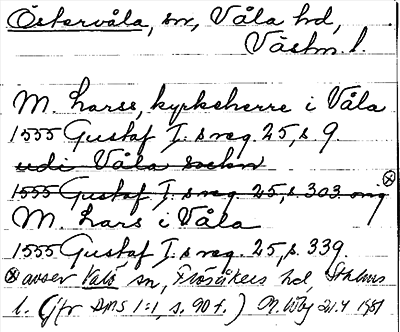 Östervåla, sn, Våla hd,
Västm. l.
M. Larss, kyrkeherre i Våla
1555 Gustaf I.s reg. 25, s 9.
udi Våla sochn
1555 Gustaf I.s reg. 25, s. 303 ⊗
M. Lars i Våla
1555 Gustaf I.s reg. 25, s. 339
⊗ avser Valö sn, Frösåkers hd, Sthlms
l. (jfr 1:1, s. 90 f.) 21.4 1951